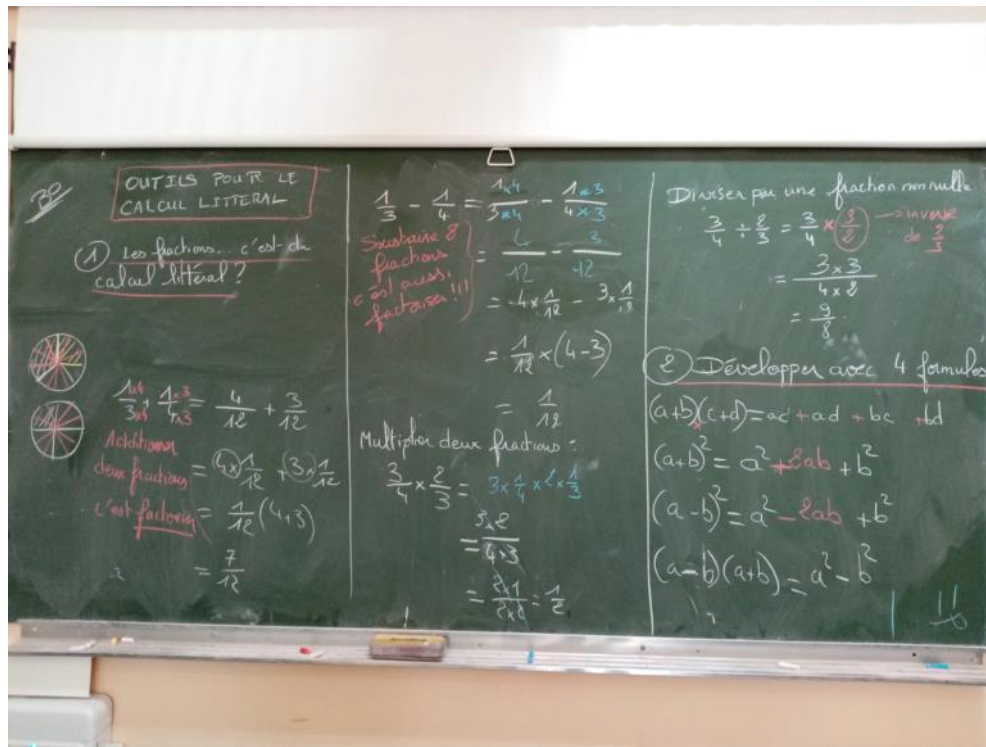 3e
OUTILS POUR LE
CALCUL LITTERAL
① Les fractions... c'est du
calcul littéral ?
1×4/3×4 + 1×3/4×3 = 4/12 + 3/12
Additionner
deux fractions
c'est factoriser
= 4×1/12 + 3×1/12
= 1/12 (4+3)
= 7/12
1/3 - 1/4 = 1×4/3×4 - 1×3/4×3
Soustraire 2
fractions
c'est aussi
factoriser !!!
= 4/12 - 3/12
= 4×1/12 - 3×1/12
= 1/12 × (4-3)
= 1/12
Multiplier deux fractions :
3/4 × 2/3 = 3×1/4×2×1/3
= 3×2/4×3
= 2×1/2×2 = 1/2
Diviser par une fraction non nulle
3/4 ÷ 2/3 = 3/4 × 3/2 → inverse
de 2/3
= 3×3/4×2
= 9/8
② Développer avec 4 formules
(a+b)(c+d) = ac + ad + bc + bd
(a+b)² = a² + 2ab + b²
(a-b)² = a² - 2ab + b²
(a-b)(a+b) = a² - b²